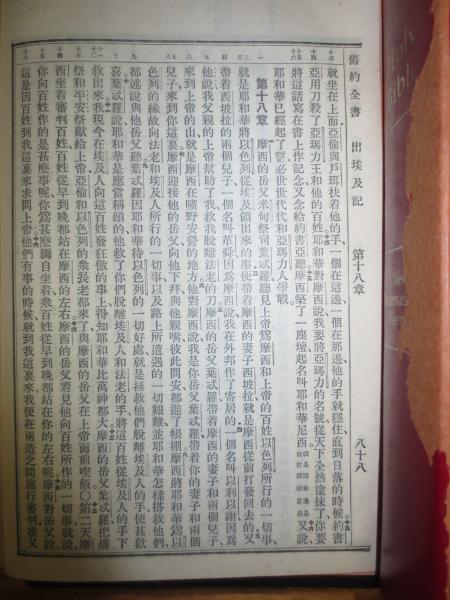 舊約全書 出埃及記 第十八章 八十八
就坐在上面亞倫與戶珥扶着他的手一個在這邊一個在那邊他的手就穩住直到日落的時候約書
亞用刀殺了亞瑪力王和他的百姓耶和華對摩西說我要將亞瑪力的名號從天下全然塗抹了你要
將這話寫在書上作記念又念給約書亞聽摩西築了一座壇起名叫耶和華尼西 又說
耶和華已經起了誓必世世代代和亞瑪力人爭戰
第十八章 摩西的岳父米甸祭司葉忒羅聽見上帝爲摩西和上帝的百姓以色列所行的一切事
就是耶和華將以色列從埃及領出來的事便帶着摩西的妻子西坡拉就是摩西從前打發回去的又
帶着西坡拉的兩個兒子一個名叫革舜因爲摩西說我在外邦作了寄居的一個名叫以利以謝因爲
他說我父親的上帝幫助了我救我脫離法老的刀摩西的岳父葉忒羅帶着摩西的妻子和兩個兒子
來到上帝的山就是摩西在曠野安營的地方他對摩西說我是你岳父葉忒羅帶着你的妻子和兩個
兒子來到你這裏摩西迎接他的岳父向他下拜與他親嘴彼此問安都進了帳棚摩西將耶和華爲以
色列的緣故向法老和埃及人所行的一切事以及路上所遭遇的一切艱難並耶和華怎樣搭救他們
都述說與他岳父聽葉忒羅因耶和華待以色列的一切好處就是拯救他們脫離埃及人的手便甚歡
喜葉忒羅說耶和華是應當稱頌的他救了你們脫離埃及人和法老的手將這百姓從埃及人的手下
救出來我現今在埃及人向這百姓發狂傲的事上得知耶和華比萬神都大摩西的岳父葉忒羅把燔
祭和平安祭獻給上帝亞倫和以色列的衆長老都來了與摩西的岳父在上帝面前喫飯〇第二天摩
西坐着審判百姓百姓從早到晚都站在摩西的左右摩西的岳父看見他向百姓所作的一切事就說
你向百姓作的是甚麽事呢你爲甚麽獨自坐着衆百姓從早到晚都站在你的左右呢摩西對岳父說
這是因百姓到我這裏來求問上帝他們有事的時候就到我這裏來我便在兩造之間施行審判我又